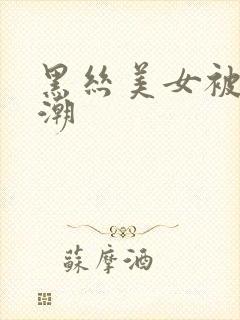 黑絲美女被
潮
蘇摩酒